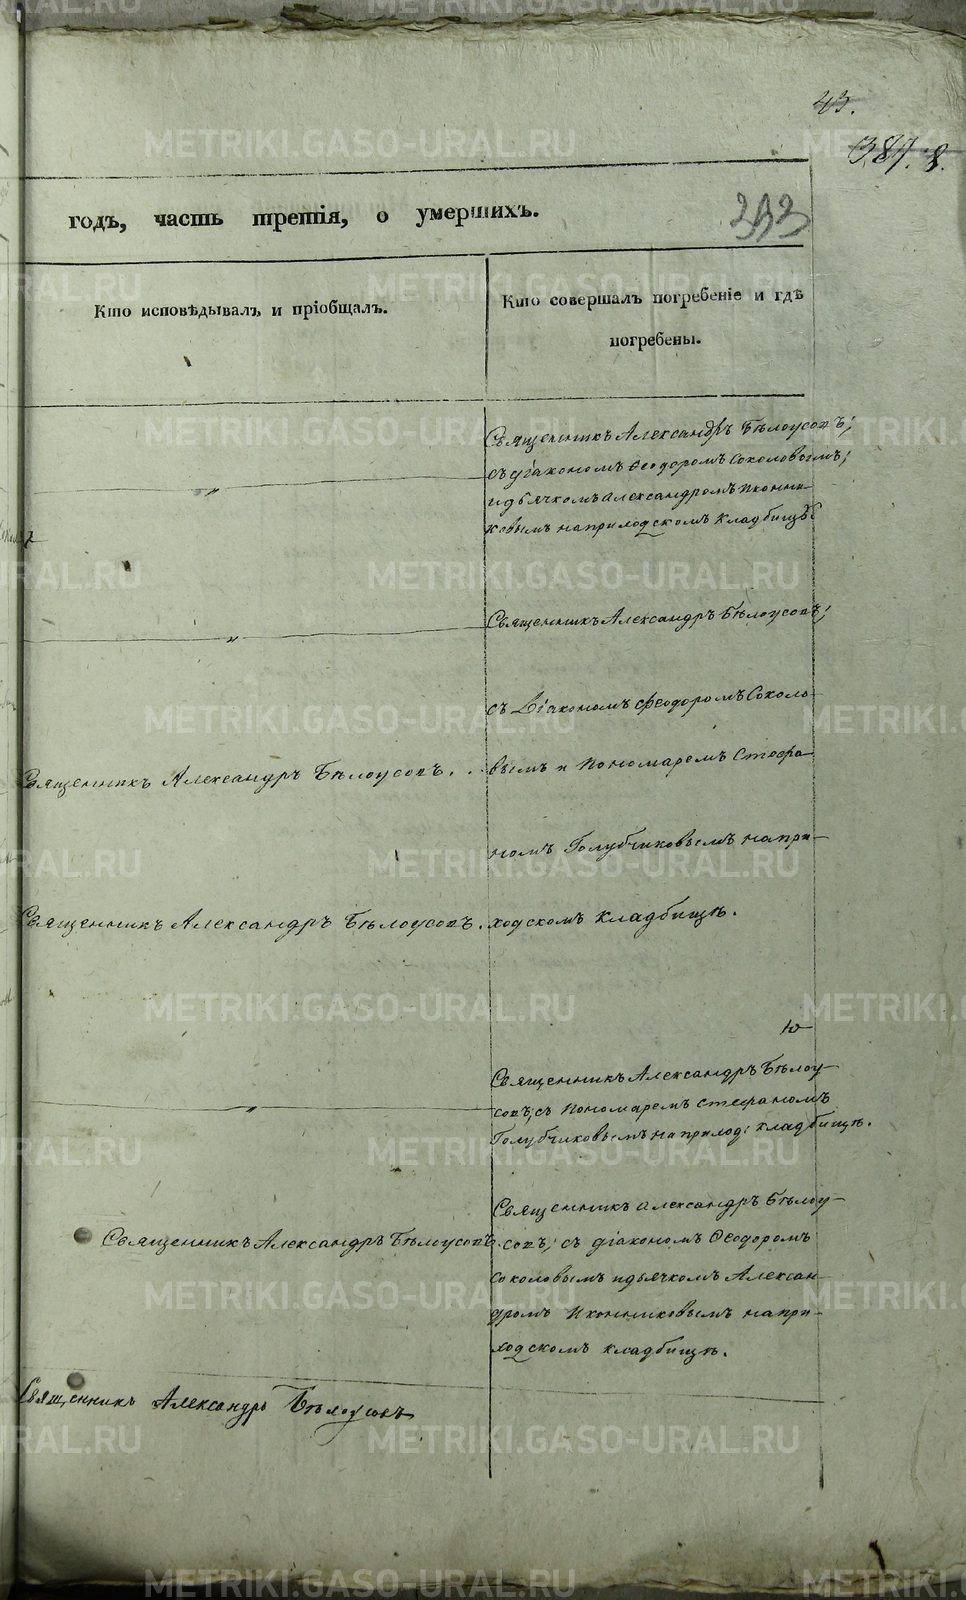 43.
387. 8.
годъ, часть третія, о умершихъ.
Кто исповѣдывалъ и пріобщалъ.
Кто совершалъ погребеніе и гдѣ
погребены.
Священникъ Александръ Бѣлоусовъ;
съ діакономъ Ѳеодоромъ Соколовымъ;
и дьячкомъ Александромъ Иконни-
ковымъ на приходскомъ кладбищѣ
„
Священникъ Александръ Бѣлоусовъ;
съ Діакономъ Феодоромъ Соколо-
вымъ и Пономаремъ Стефа-
номъ Голубчиковымъ на при-
ходскомъ кладбищѣ.
„
Священникъ Александръ Бѣлоусовъ.
Священникъ Александръ Бѣлоусовъ.
Священникъ Александръ Бѣлоу-
совъ, съ Пономаремъ Стефаномъ
Голубчиковымъ на приход: кладбищѣ.
„
Священникъ Александръ Бѣлоу-
совъ; съ діакономъ Ѳеодоромъ
Соколовымъ и дьячкомъ Алексан-
дромъ Иконниковымъ на при-
ходскомъ кладбищѣ.
Священникъ Александръ Бѣлоусовъ.
Священникъ Александръ Бѣлоусовъ
METRIKI.GASO-URAL.RU